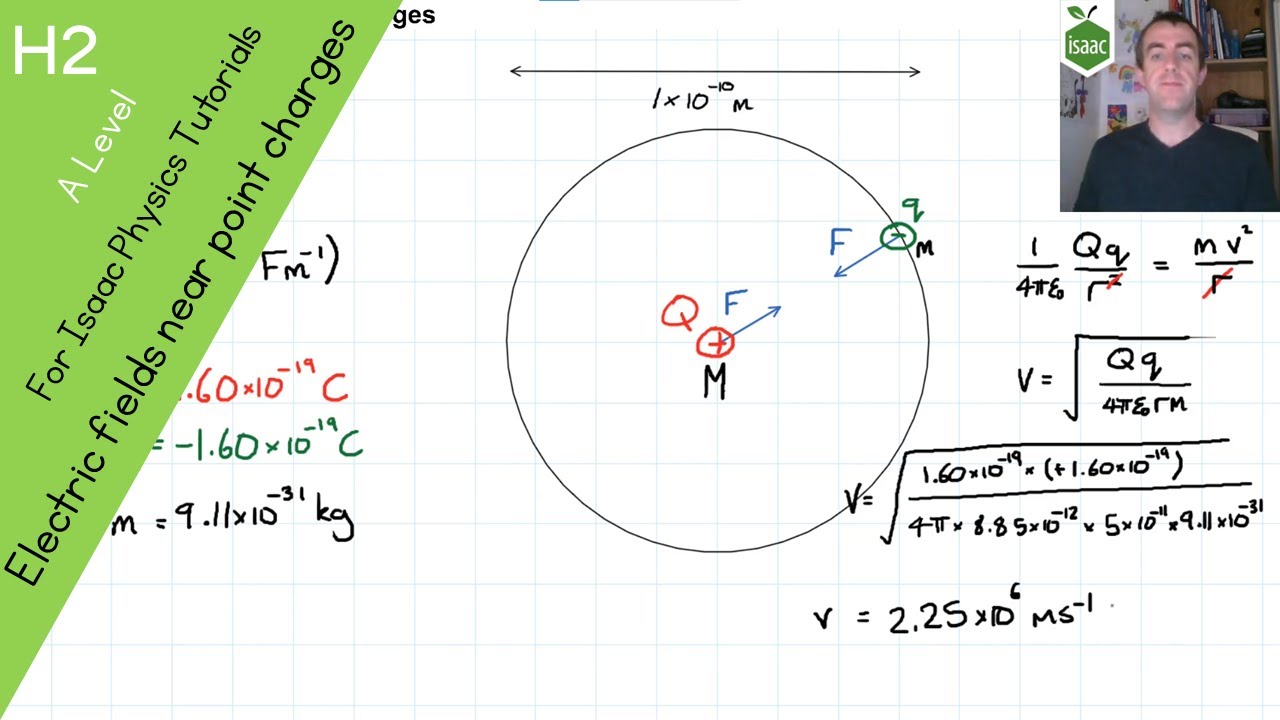 H2
A Level
For Isaac Physics Tutorials
Electric fields near point charges
ges
isaac
1×10⁻¹⁰ m
q
F
m
Q F
+
M
Fm⁻¹)
.60×10⁻¹⁹ C
= -1.60×10⁻¹⁹ C
m = 9.11×10⁻³¹ kg
1/4πε₀ Qq/r² = mv²/r
V = √(Qq/4πε₀rm)
V = √(1.60×10⁻¹⁹ × (+1.60×10⁻¹⁹)/4π × 8.85×10⁻¹² × 5×10⁻¹¹ × 9.11×10⁻³¹)
v = 2.25×10⁶ ms⁻¹